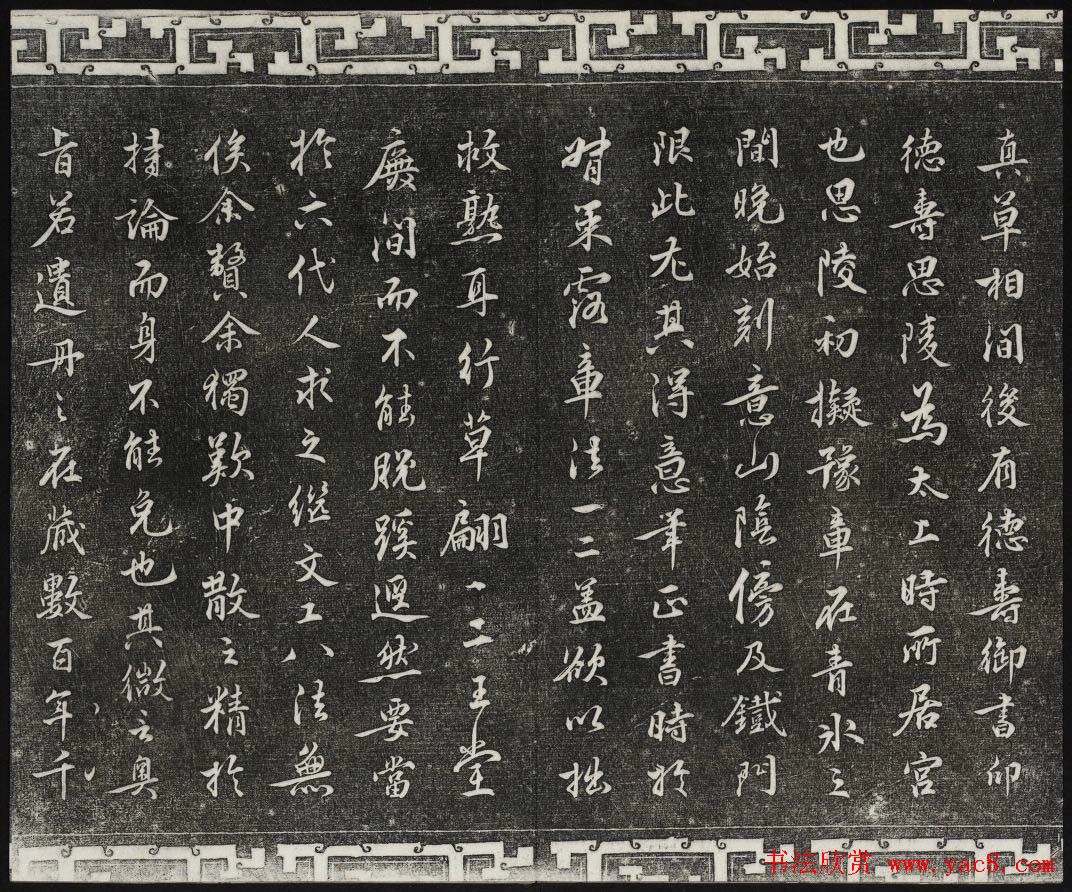 真草相間後有德壽御書印
德壽思陵為太上時所居宮
也思陵初擬豫章在青氷之
間晚始刻意山陰傍及鐵門
限此尤其得意筆正書時於
策露章法一二蓋欲以拙
救熟耳行草翩翩二王堂
廡間而不能脫蹊逕然要當
於六代人求之繼文工八法無
俟余贊余獨歎中散之精於
持論而身不能免也其微言奧
旨若遺丹之在藏數百年千
书法欣赏 www.yac8.com